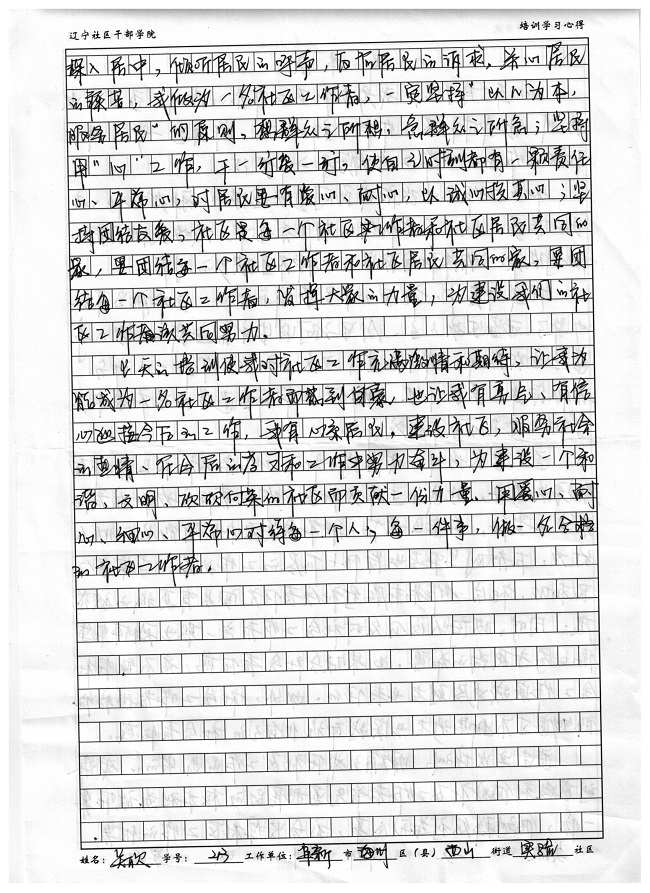 辽宁社区干部学院 培训学习心得
深入居中,倾听居民的呼声,反馈居民的诉求,关心居民
的疾苦,我做为一名社区工作者,一贯坚持"以人为本,
服务居民"的原则。想群众之所想,急群众之所急;坚持
用"心"工作,干一行爱一行,使自己时刻都有一颗责任
心、平常心,对居民要有爱心、耐心,以诚心换真心;坚
持团结友爱。社区是每一个社区工作者和社区居民共同的
家,要团结每一个社区工作者和社区居民共同的家,要团
结每一个社区工作者,发挥大家的力量,为建设我们的社
区工作者该共同努力。
七天的培训使我对社区工作充满激情和期待,让我为
能成为一名社区工作者而感到自豪,也让我有勇气、有信
心迎接今后的工作,我有心系居民,建设社区,服务社会
的热情、在今后的学习和工作中努力奋斗,为建设一个和
谐、文明、欣欣向荣的社区而贡献一份力量,用爱心、耐
心、细心、平常心对待每一个人,每一件事,做一名合格
的社区工作者。
姓名: 关欣 学号: 213 工作单位: 阜新 市 海州 区(县) 西山 街道 社区